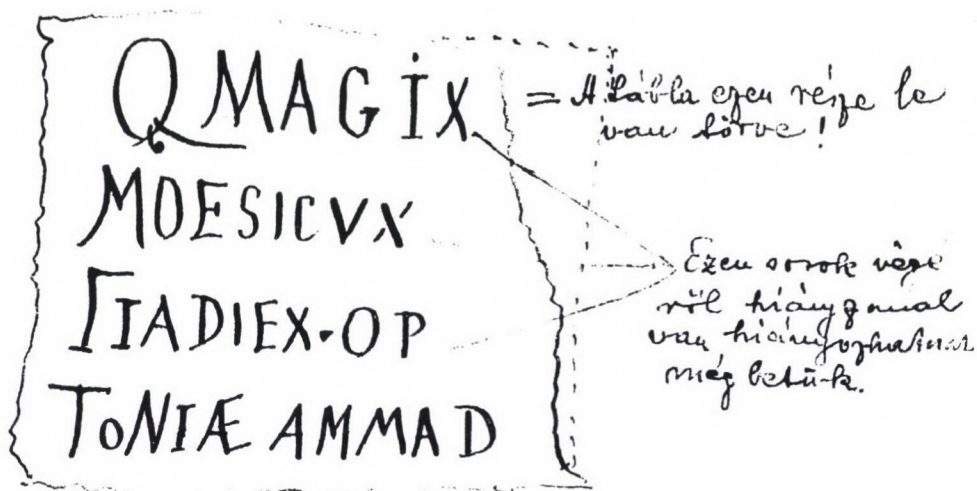 QMAGIX
MOESICVX
ΓIADIEX·OP
TONIÆ AMMAD
= A tábla ezen része le
van törve!
Ezen sorok végé
ről hiányzanak
van hiányozhatnak
még betűk.